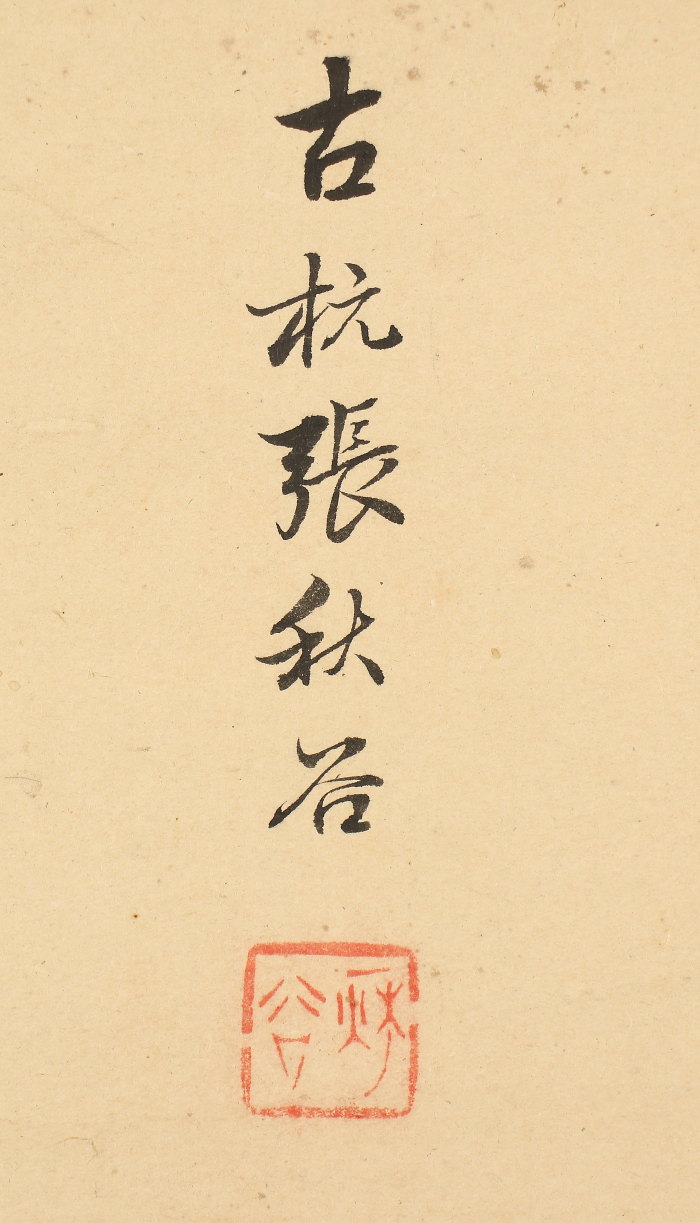 古杭張秋谷
秋谷